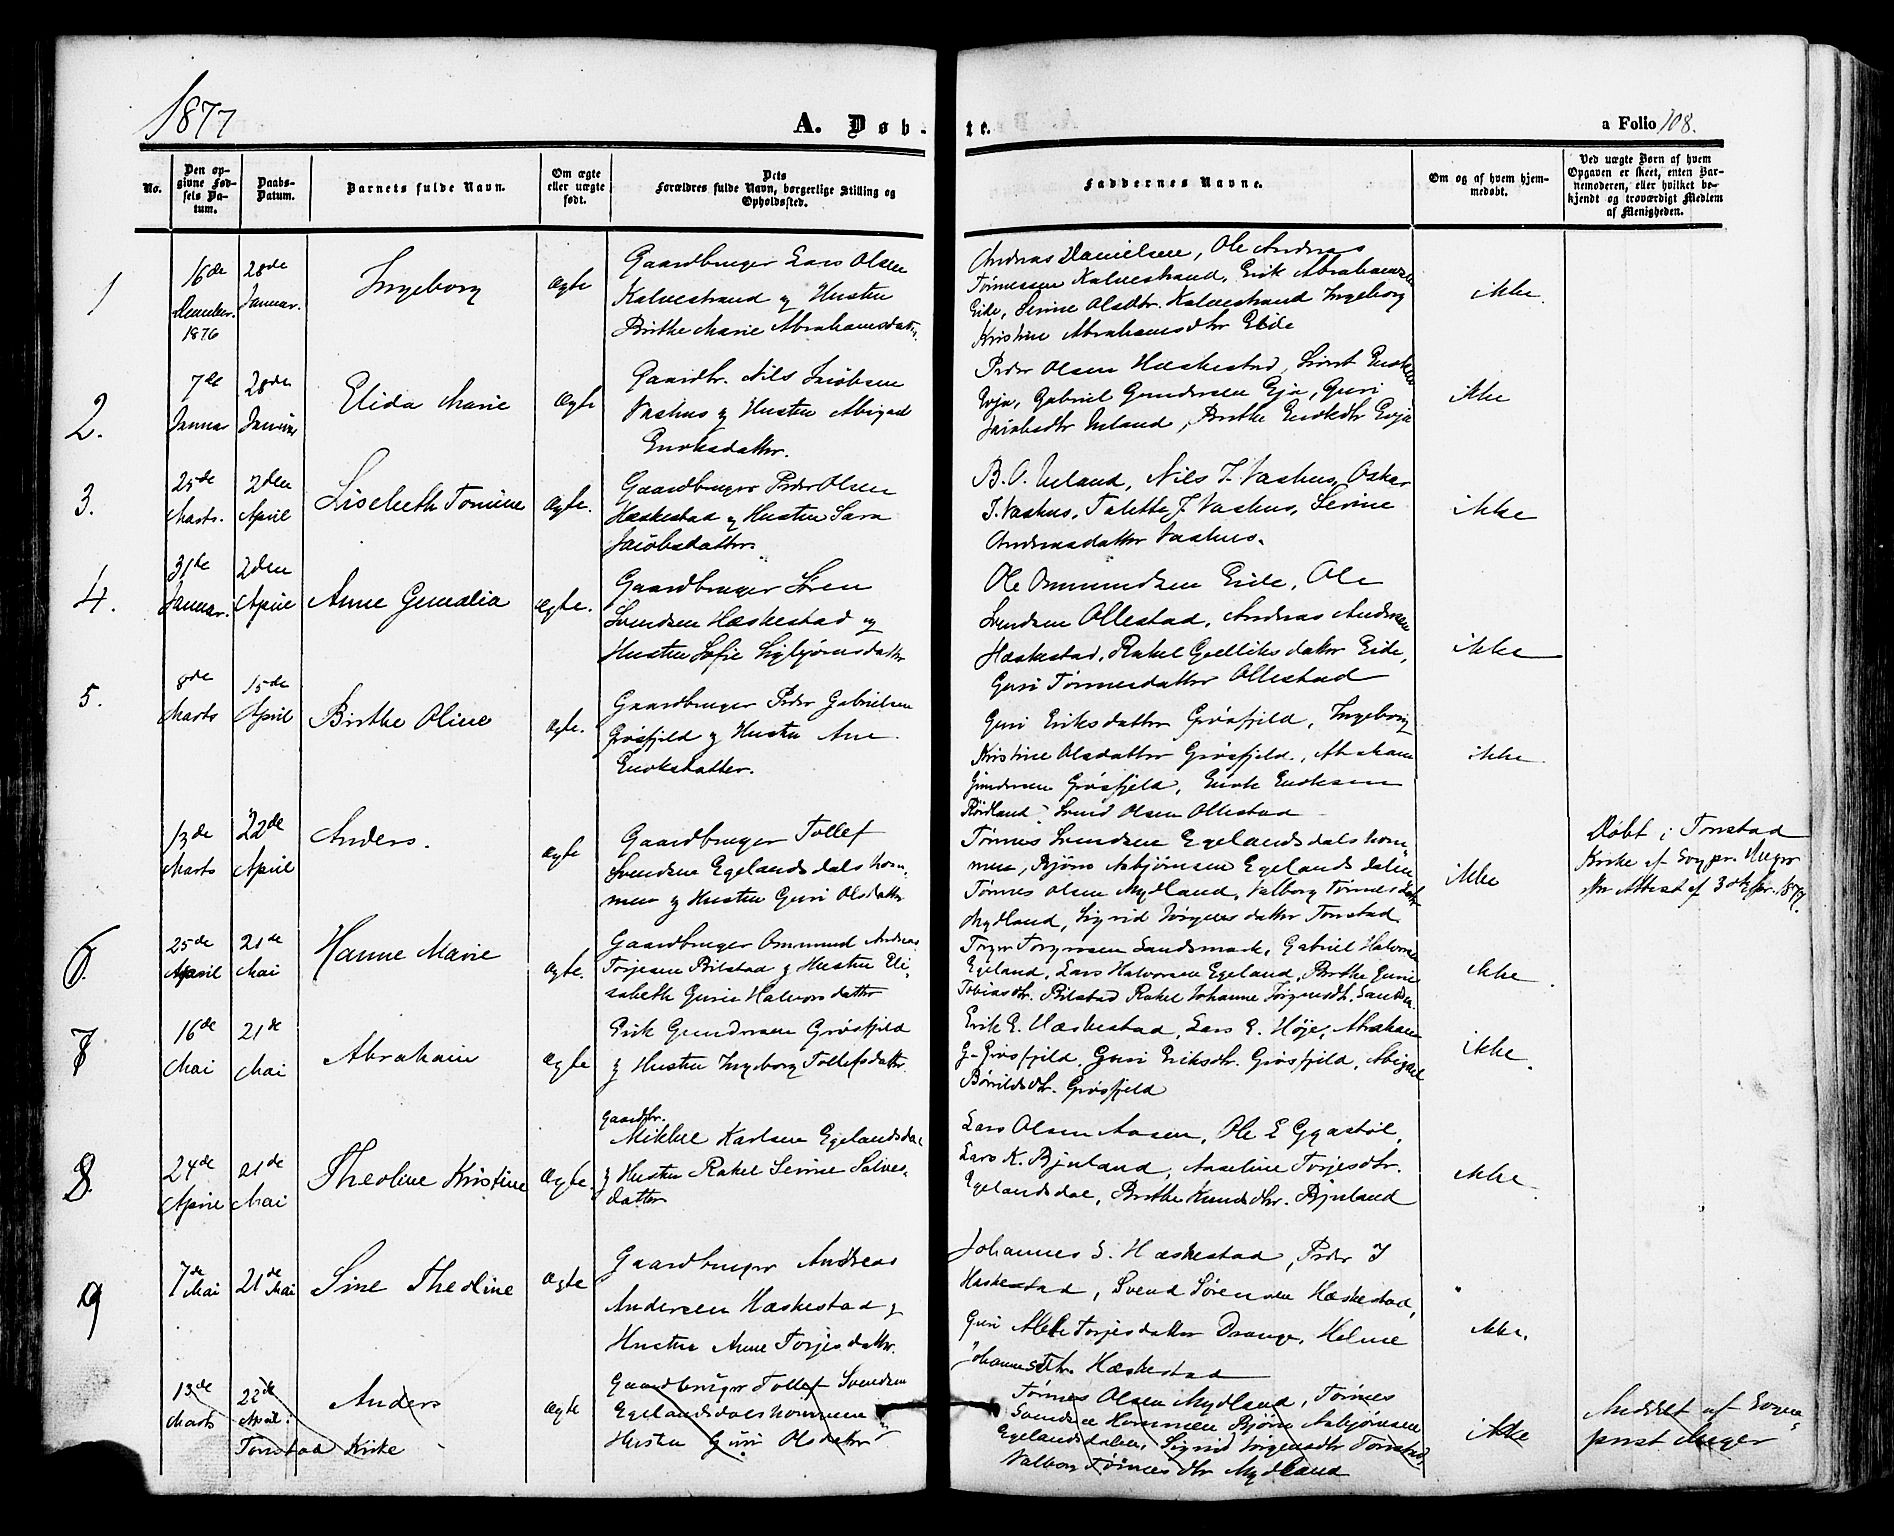 1877
A. Døb-
te.
a Folio 108.
No.
Den op-
givne Fød-
sels Da-
tum.
Daabs-
Datum.
Barnets fulde Navn.
Om ægte
eller uægte
født.
Dets
Forældres fulde Navn, borgerlige Stilling og
Opholdssted.
Faddernes Navne.
Om og af hvem hjem-
medøbt.
Ved uægte Børn af hvem
Opgaven er skeet, enten Bar-
nemoderen, eller hvilket be-
kjendt og troværdigt Medlem
af Menigheden.
1
16de
December
1876
28de
Januar.
Ingeborg
Ægte
Gaardbruger Lars Olsen
Kalvestrand og Hustru
Birthe Marie Abrahamsdatr.
Andreas Danielsen, Ole Andreas
Tønnessen Kalvestrand, Erik Abrahamsen
Eide, Serine Olsdtr. Kalvestrand Ingeborg
Kristine Abrahamsdtr Eide
ikke.
2.
7de
Januar
28de
Januar
Elida Marie
Ægte
Gaardbr. Nils Jacobsen
Vashus og Hustru Abigael
Enoksdatter.
Peder Olsen Hæskestad, Sivert Enoksen
Evja, Gabriel Gundersen Eja, Guri
Jacobsdtr Ueland, Birthe Enoksdtr Evja
ikke
3.
25de
Marts.
2den
April
Lisebeth Tomine
Ægte.
Gaardbruger Peder Olsen
Hæskestad og Hustru Sara
Jacobsdatter.
B. O. Ueland, Nils J. Vashus, Oskar
J. Vashus, Talette J Vashus, Serine
Andreasdatter Vashus.
ikke
4.
31de
Januar.
2den
April
Anne Gunalia
Ægte.
Gaardbruger Søren
Svendsen Hæskestad og
Hustru Sofie Sigbjørnsdatter
Ole Ommundsen Eide, Ole
Svendsen Ollestad, Andreas Andersen
Hæskestad, Rakel Goelliksdatter Eide,
Guri Tønnesdatter Ollestad
ikke
5.
8de
Marts
15de
April
Birthe Oline
Ægte.
Gaardbruger Peder Gabrielsen
Grøsfjeld og Hustru Ane
Enoksdatter.
Guri Eriksdatter Grøsfjeld, Ingeborg
Kristine Olsdatter Grøsfjeld, Abraham
Gundersen Grøsfjeld, Enok Enoksen
Rørdland, Svend Olsen Ollestad
ikke
13de
Marts
22de
April
Anders.
Ægte
Gaardbruger Tollef
Svendsen Egelandsdalshom-
men og Hustru Guri Olsdatter
Tønnes Svendsen Egelandsdalshom-
men, Bjørn Asbjørnsen Egelandsdalen
Tønnes Olsen Mydland, Valborg Tønnesdatter
Mydland, Sigrid Jørgensdatter Tonstad
ikke
Døbt i Tonstad
Kirke af Sognpr. Meyer
efter Attest af 3
6.
25de
April
21de
Mai
Hanne Marie
Ægte.
Gaardbruger Ommund Andreas
Torjesen Bilstad og Hustru Eli-
sabeth Gurie Halvorsdatter
Torger Torgersen Sandsmark, Gabriel Halvorsen
Egeland, Lars Halvorsen Egeland, Birthe Gurie
Tobiasdtr. Bilstad Rakel Johanne Jørgensdtr.
ikke
7
16de
Mai
21de
Mai
Abraham
Ægte
Erik Gundersen Grøsfjeld
og Hustru Ingeborg Tollefsdatter.
Erik E. Hæskestad, Lars E. Høje, Abraham
G. Grøsfjeld, Guri Eriksdtr. Grøsfjeld, Abigael
Børildsdtr. Grøsfjeld
ikke.
8.
24de
April
21de
Mai
Theoline Kristine
Ægte.
Gaardbr.
Mikkel Karlsen Egelandsdal
og Hustru Rakel Serine Salves-
datter
Lars Olsen Aasen, Ole E Eggastøl,
Lars K. Bjuland, Anseline Torjesdtr.
Egelandsdal, Birthe Knudsdtr. Bjuland
ikke.
9
7de
Mai
21de
Mai
Sine Theoline
Ægte
Gaardbruger Andreas
Andersen Hæskestad og
Hustru Anne Torjesdatter.
Johannes S. Hæskestad, Peder J
Hæskestad, Svend Sørensen Hæskestad,
Guri Alete Torjesdatter Drange, Helene
Johannesdtr. Hæskestad
ikke.
13de
Marts
22de
April.
Tonstad Kirke
Anders
Ægte
Gaardbruger Tollef Svendsen
Egelandsdalshommen og
Hustru Guri Olsdatter
Tønnes Olsen Mydland, Tønnes
Svendsen Hommen Bjørn Asbjørnsen
Egelandsdalen, Sigrid Jørgensdtr Tonstad,
Valborg Tønnesdtr Mydland
ikke
Meddelt af Sogne-
prest Meyer